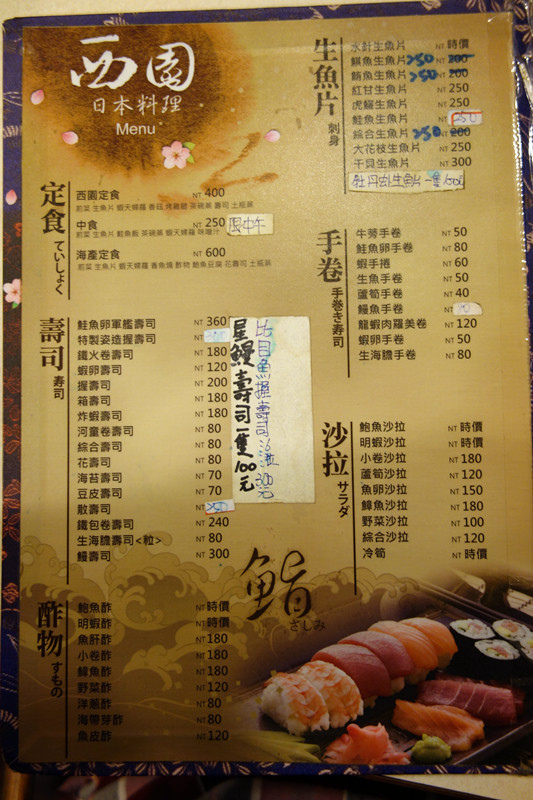 西園
日本料理
Menu
定食
ていしょく
西園定食 NT 400
中食 NT 250 限中午
海產定食 NT 600
壽司
寿司
鮭魚卵軍艦壽司 NT 360
特製姿造握壽司 NT
鐵火卷壽司 NT 180
蝦卵壽司 NT 120
握壽司 NT 200
箱壽司 NT 180
炸蝦壽司 NT 180
河童卷壽司 NT 80
綜合壽司 NT 80
花壽司 NT 80
海苔壽司 NT 70
豆皮壽司 NT 70
散壽司 NT
鐵包卷壽司 NT 240
生海膽壽司<粒> NT 80
鰻壽司 NT 300
星鰻壽司一隻100元
比目魚握壽司 300元
酢物
すもの
鮑魚酢 NT 時價
明蝦酢 NT 時價
魚肝酢 NT 180
小卷酢 NT 180
鱆魚酢 NT 180
野菜酢 NT 120
洋蔥酢 NT 80
海帶芽酢 NT 80
魚皮酢 NT 120
生魚片
刺身
水針生魚片 NT 時價
旗魚生魚片 250 NT 200
鮪魚生魚片 250 NT 200
紅甘生魚片 NT 250
虎鰡生魚片 NT 250
鮭魚生魚片 NT 250
綜合生魚片 250 NT 200
大花枝生魚片 NT 250
干貝生魚片 NT 300
牡丹蝦生魚片一隻100元
手卷
手巻き寿司
牛蒡手卷 NT 50
鮭魚卵手卷 NT 80
蝦手捲 NT 60
生魚手卷 NT 50
蘆筍手卷 NT 40
鰻魚手卷 NT
龍蝦肉羅美卷 NT 120
蝦卵手卷 NT 50
生海膽手卷 NT 80
沙拉
サラダ
鮑魚沙拉 NT 時價
明蝦沙拉 NT 時價
小卷沙拉 NT 180
蘆筍沙拉 NT 120
魚卵沙拉 NT 150
鱆魚沙拉 NT 180
野菜沙拉 NT 100
綜合沙拉 NT 120
冷筍 NT 時價
鮨
さしみ